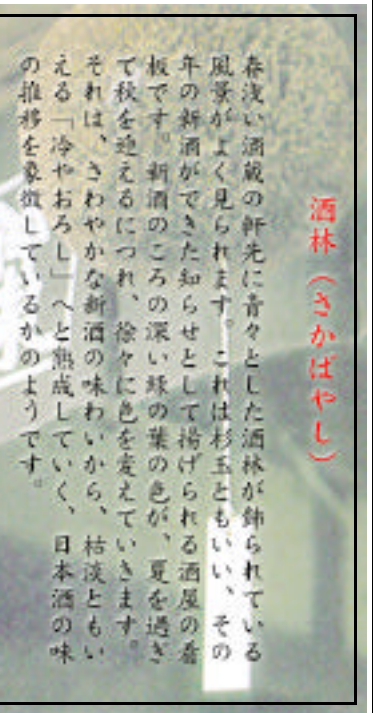 酒林（さかばやし）
春浅い酒蔵の軒先に青々とした酒林が飾られている
風景がよく見られます。これは杉玉ともいい、その
年の新酒ができた知らせとして揚げられる酒屋の看
板です。新酒のころの深い緑の葉の色が、夏を過ぎ
て秋を迎えるにつれ、徐々に色を変えていきます。
それは、さわやかな新酒の味わいから、枯淡ともい
える「冷やおろし」へと熟成していく、日本酒の味
の推移を象徴しているかのようです。